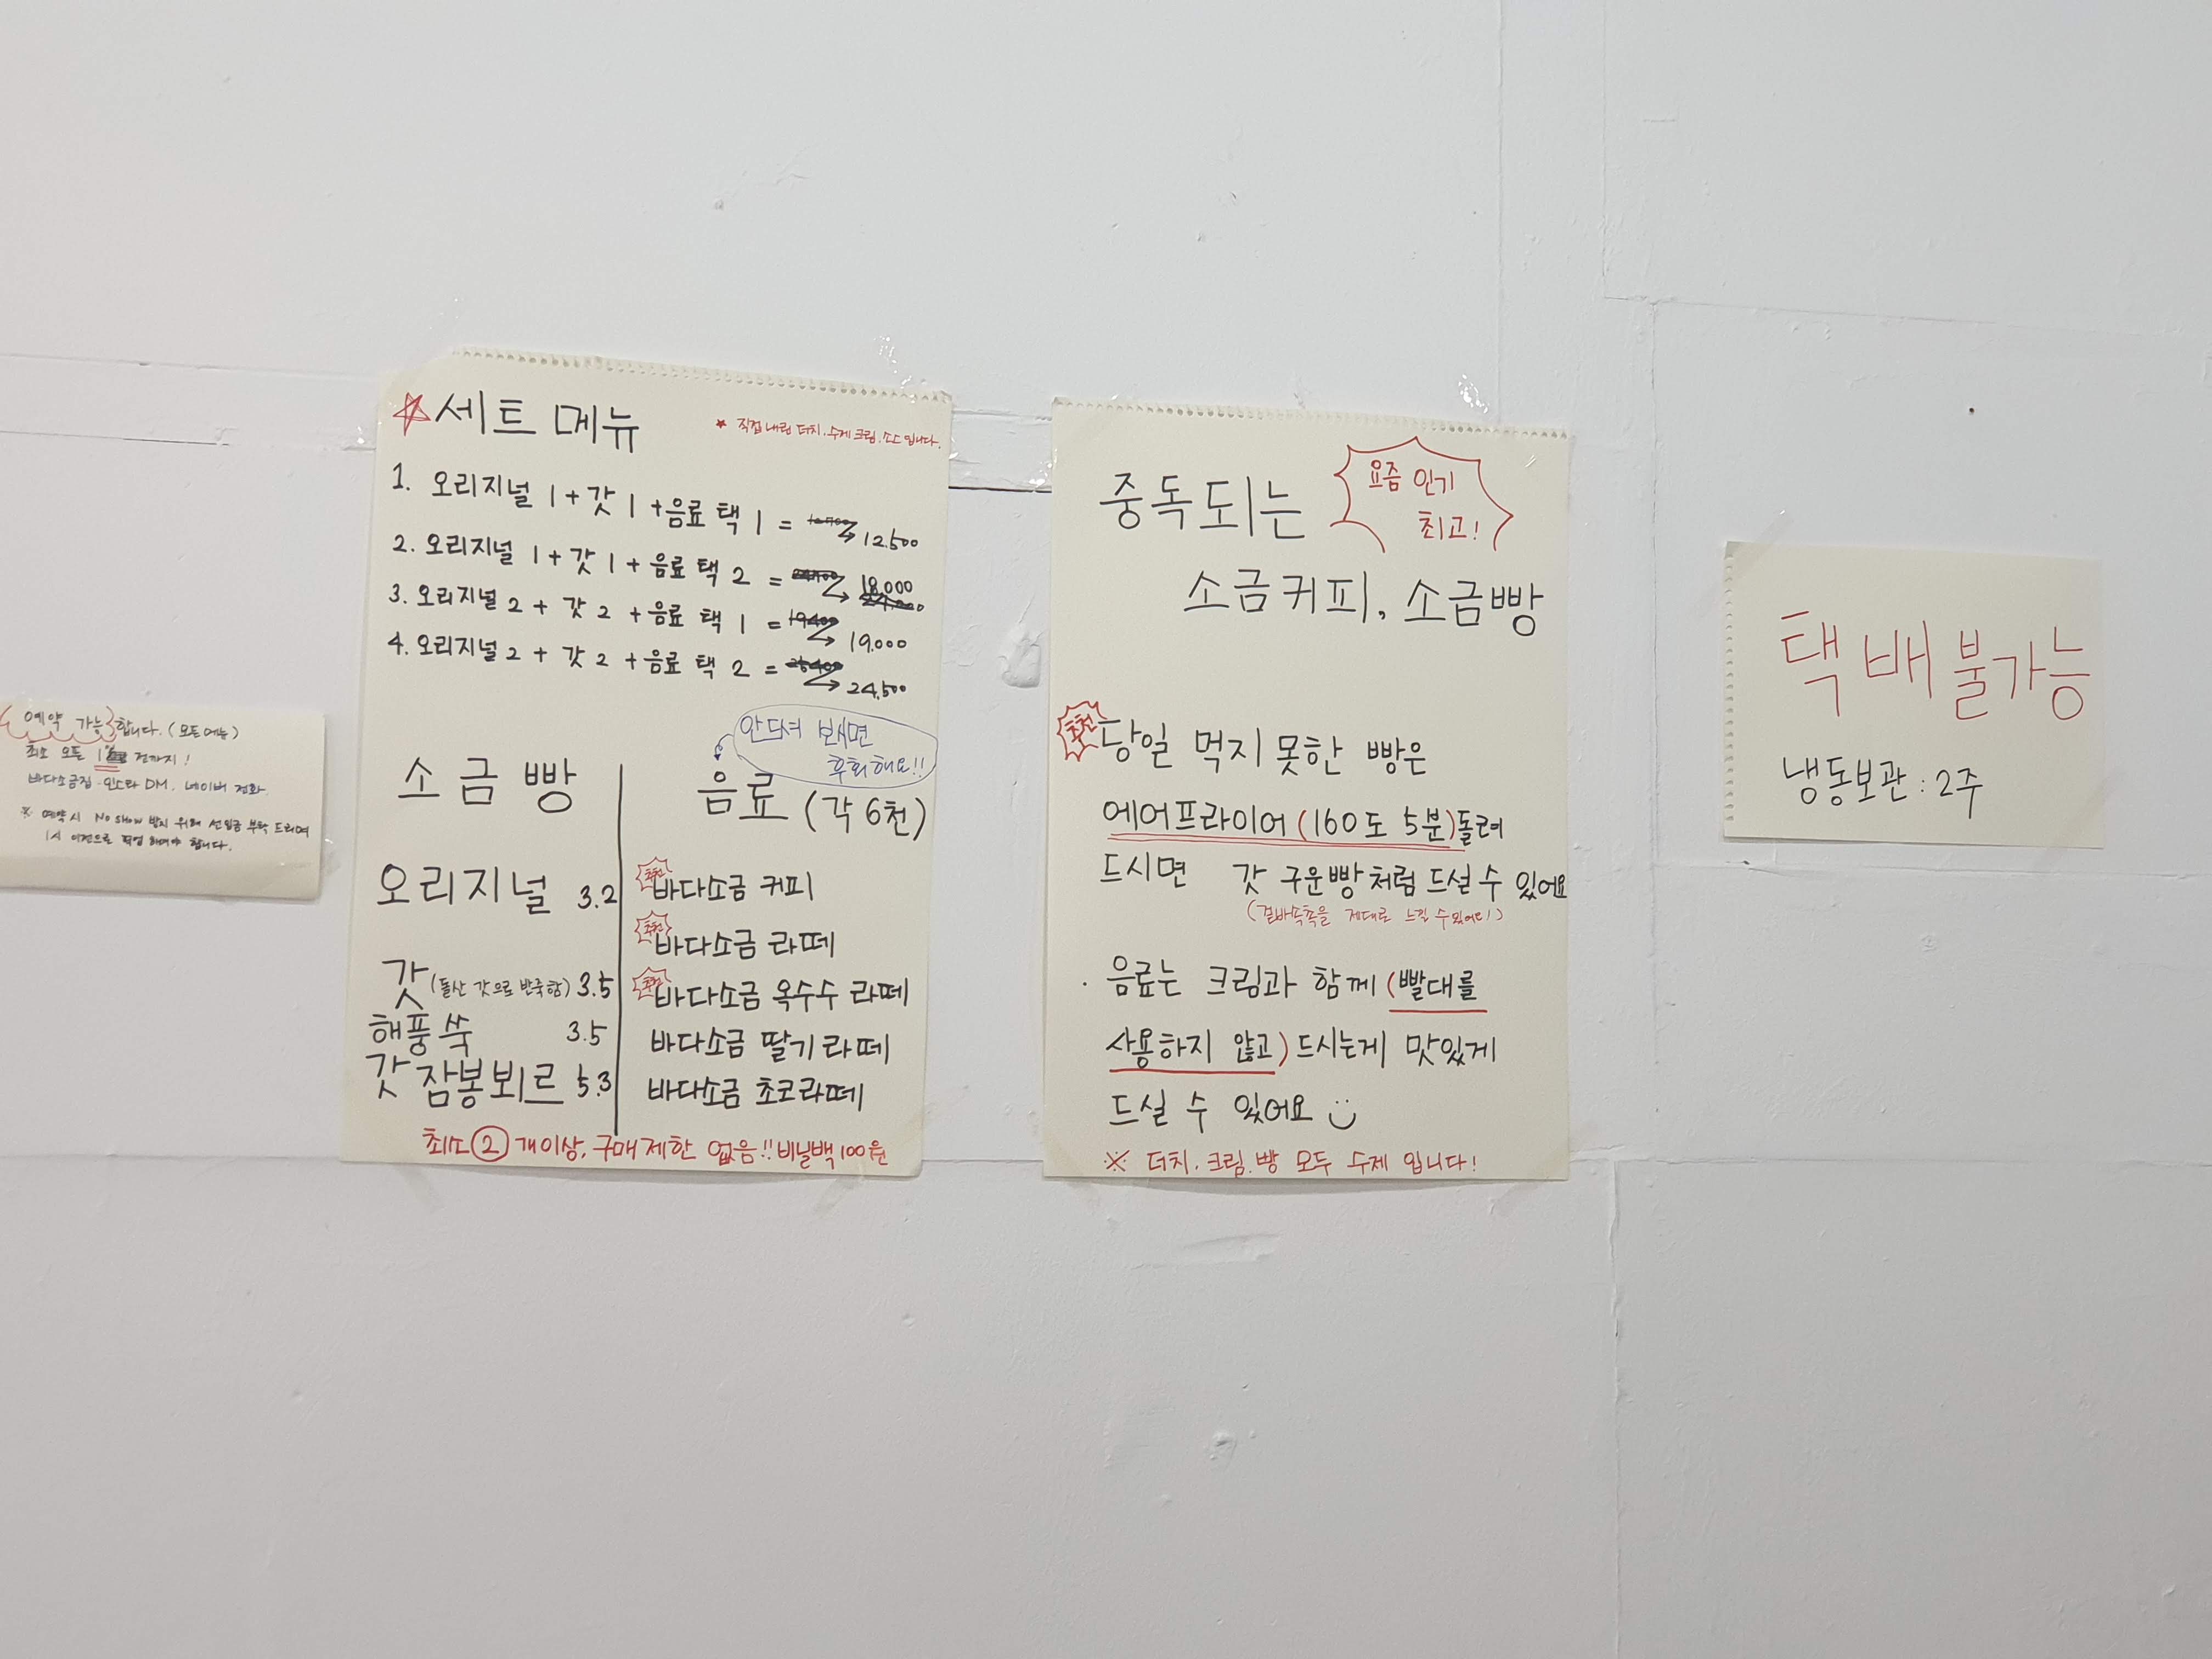 예약 가능 합니다. (모든메뉴)
최소 오픈 전까지!
바다소금집 · 인스타 DM. 네이버 전화
※ 예약시 No show 방지 위해 선입금 부탁 드리며
1시 이전으로 픽업 하셔야 합니다.
세트 메뉴
* 직접 내린 더치. 수제 크림. 소스 입니다.
1. 오리지널 1 + 갓 1 + 음료 택 1 = 12.500
2. 오리지널 1 + 갓 1 + 음료 택 2 = 18.000
3. 오리지널 2 + 갓 2 + 음료 택 1 = 19400 19.000
4. 오리지널 2 + 갓 2 + 음료 택 2 = 25400 24.500
안드셔 보시면
후회해요!!
소금빵
음료 (각 6천)
오리지널 3.2
갓 (돌산 갓으로 반죽함) 3.5
해풍쑥 3.5
갓 잠봉뵈르 5.3
추천 바다소금 커피
추천 바다소금 라떼
추천 바다소금 옥수수 라떼
바다소금 딸기라떼
바다소금 초코라떼
최소 2 개이상, 구매제한 없음!! 비닐백 100원
중독되는
요즘 인기
최고!
소금커피, 소금빵
추천 당일 먹지 못한 빵은
에어프라이어 (160도 5분) 돌려
드시면 갓 구운빵처럼 드실 수 있어요
(겉바속촉을 제대로 느낄 수 있어요!)
· 음료는 크림과 함께 (빨대를
사용하지 않고) 드시는게 맛있게
드실 수 있어요
※ 더치. 크림. 빵 모두 수제 입니다!
택배불가능
냉동보관 : 2주